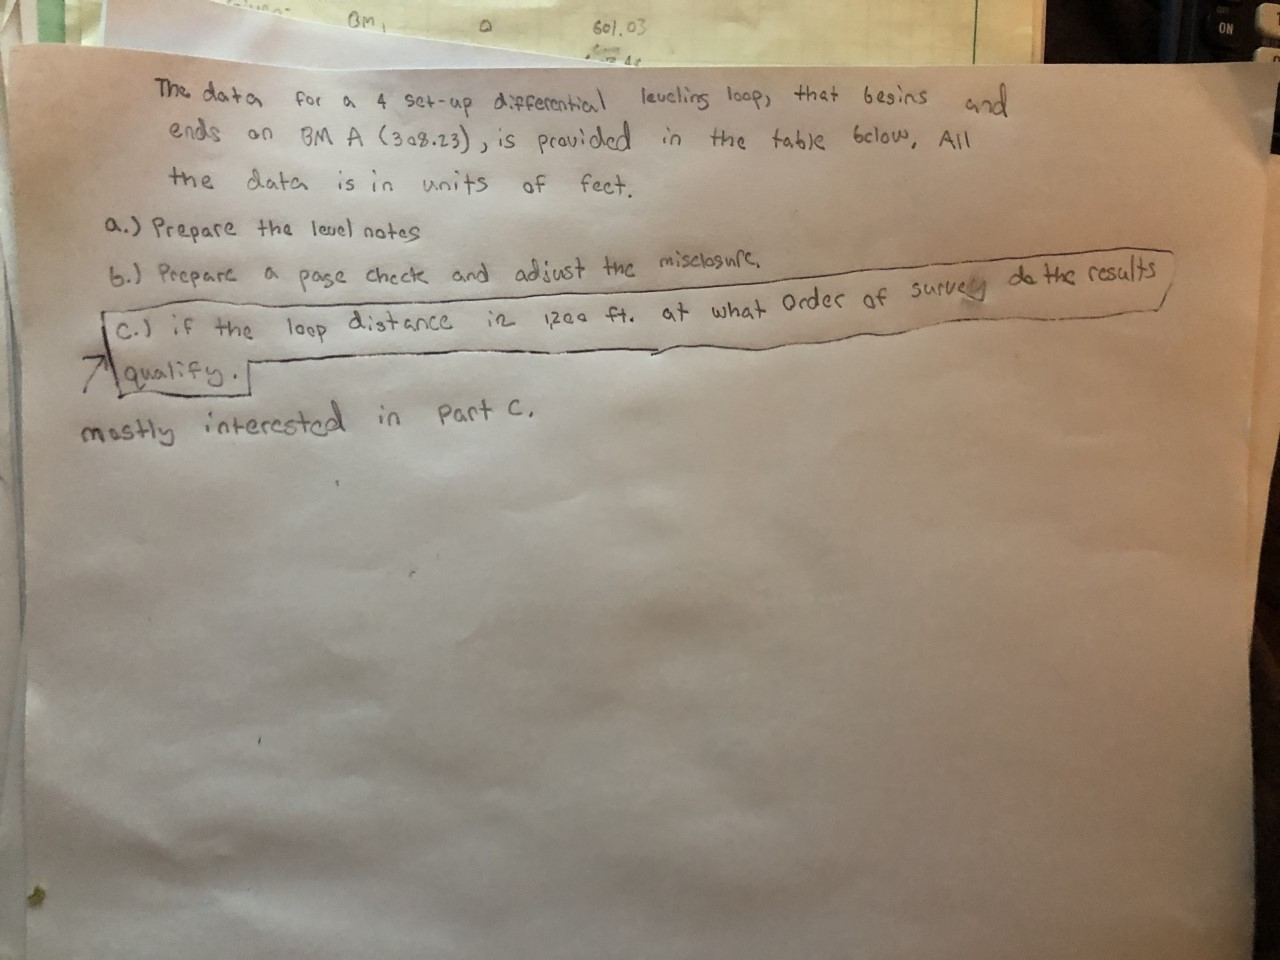 BM,
601.03
ON
The data for a 4 set-up differential leveling loop, that begins and
ends on BM A (308.23), is provided in the table below, All
the data is in units of feet.
a.) Prepare the level notes
b.) Prepare a page check and adjust the misclosure.
c.) if the loop distance is 1,200 ft. at what order of survey do the results
qualify.
mostly interested in part c.